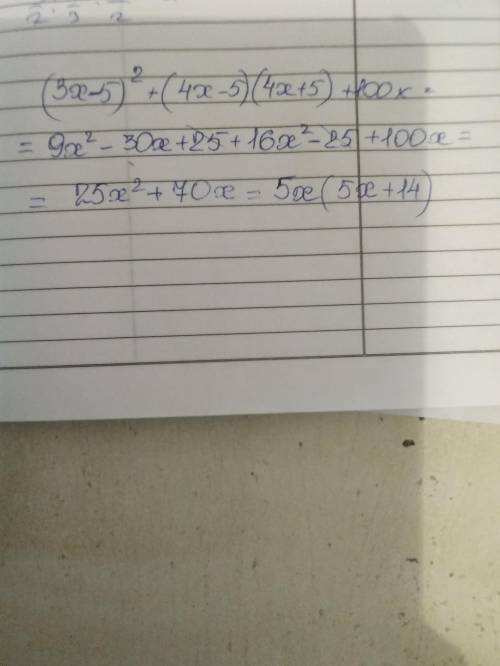 (3x-5)² + (4x-5)(4x+5) + 100x =
= 9x² - 30x + 25 + 16x² - 25 + 100x =
= 25x² + 70x = 5x(5x+14)